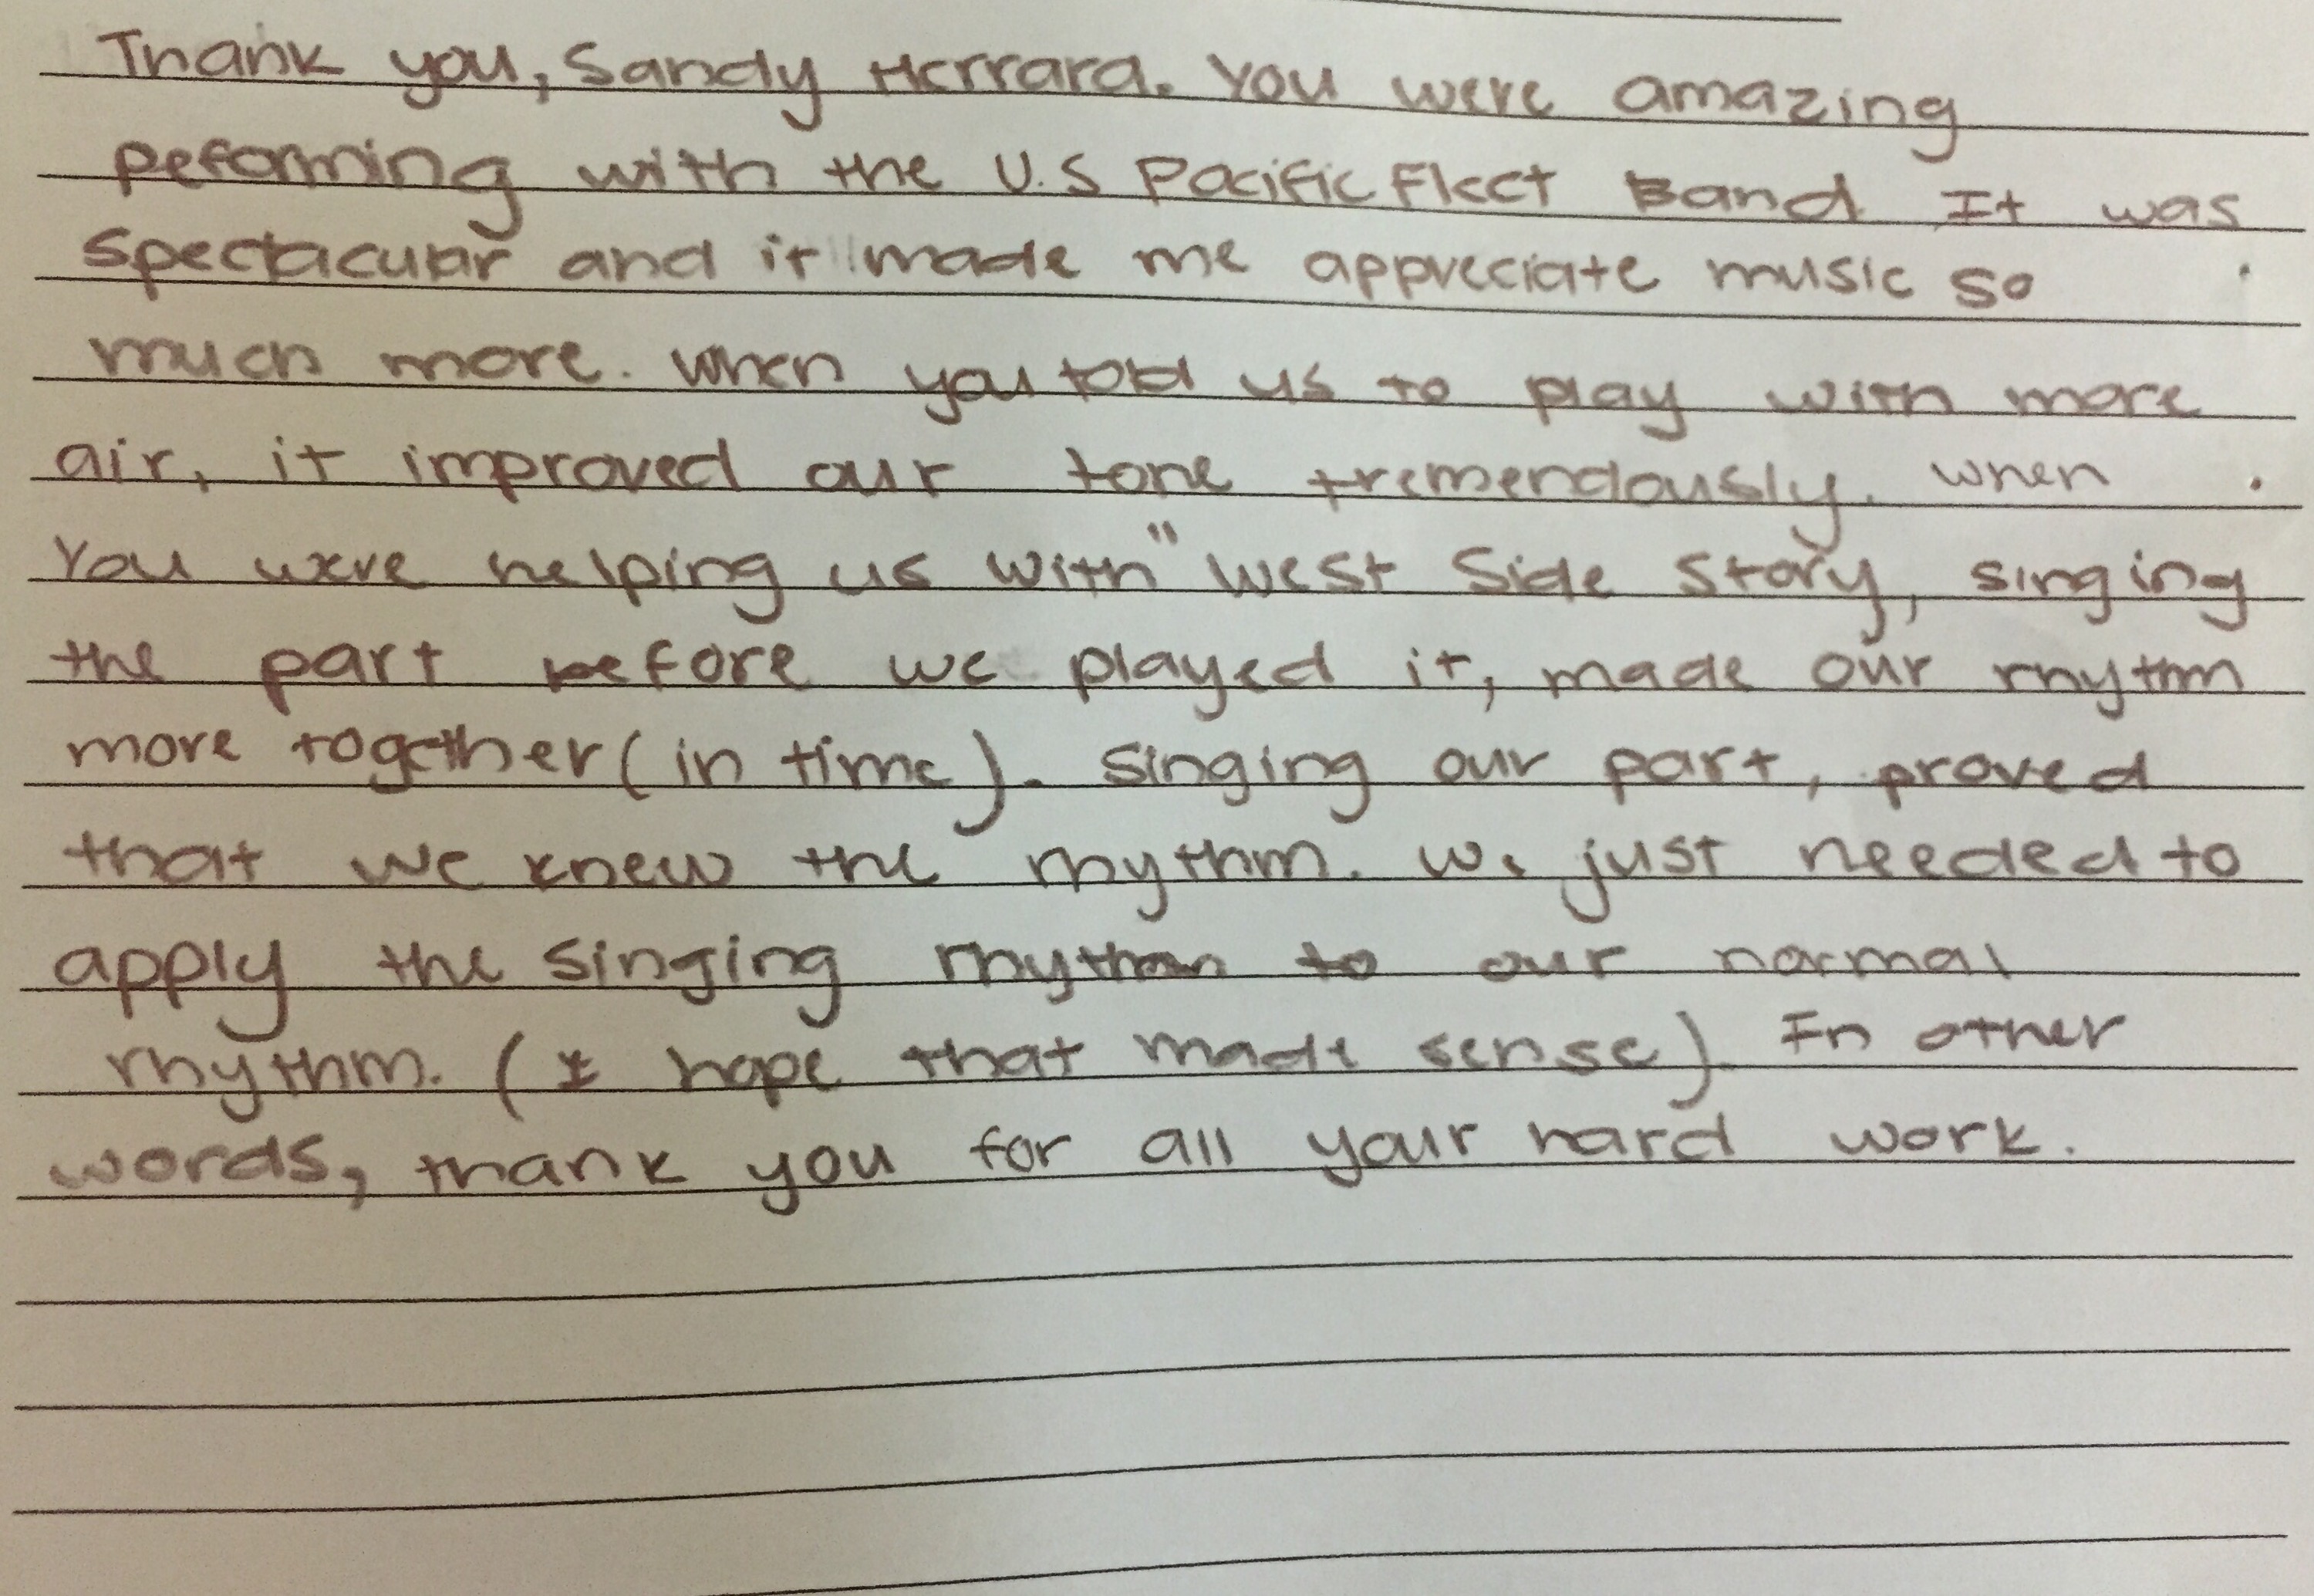 Thank you, Sandy Herrara. You were amazing
peforming with the U.S Pacific Fleet Band It was
spectacular and it made me appreciate music so
much more. When you told us to play with more
air, it improved our tone tremendously. when
You were helping us with "West Side Story, singing
the part before we played it, made our rhythm
more together (in time). Singing our part, proved
that we knew the rhythm. We just needed to
apply the singing rhythm to our normal
rhythm. (I hope that made sense). In other
words, thank you for all your hard work.